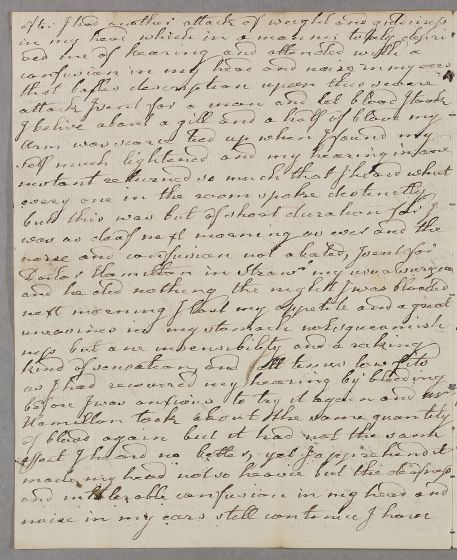 after I had another attack of weight and giddiness
in my head which in a manner totaly depri
ved me of hearing and attended with a
confusion in my head and noise in my ears
that baffles description upon this severe
attack I sent for a man and let blood I took
I belive about a gill and a half of blood my
arm was scarce tied up when I found my
self much lightened and my hearing in ane
instant returned so much that I heard what
every one in the room spoke destinctly
but this was but of short duration for I
was as deaf next morning as ever and the
noise and confusion not abated, I sent for
Doctor Hamilton in my usual surgeon
and he did nothing the night I was blooded
next morning I lost my appetite and a great
uneasiness in my stomach not squeamish
ness but ane insensibility and a
kind of sensation and low fits
as I had recovered my hearing by bleeding
before I was anxious to try it again and Mr
Hamilton took about the same quantity
of blood again but it had not the same
effect I heard no better yet I apprehend it
made my head not so heavie but the deafness
and intolerable confusion in my head and
noise in my ears still continue I have